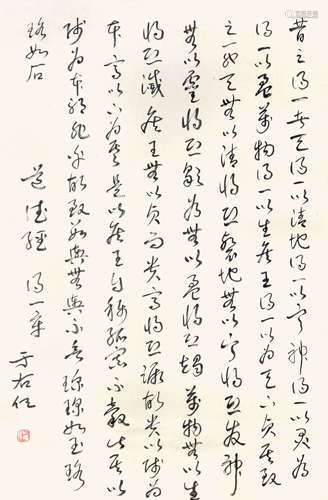 昔之得一者天得一以清地得一以寧神得一以靈谷
得一以盈萬物得一以生侯王得一以為天下貞其致
之一也天無以清將恐裂地無以寧將恐發神
無以靈將恐歇谷無以盈將恐竭萬物無以生
將恐滅侯王無以貞而貴高將恐蹶故貴以賤為
本高以下為基是以侯王自稱孤寡不穀此其以
賤為本邪非乎故致數輿無輿不欲琭琭如玉珞
珞如石
道德經 得一章
于右任